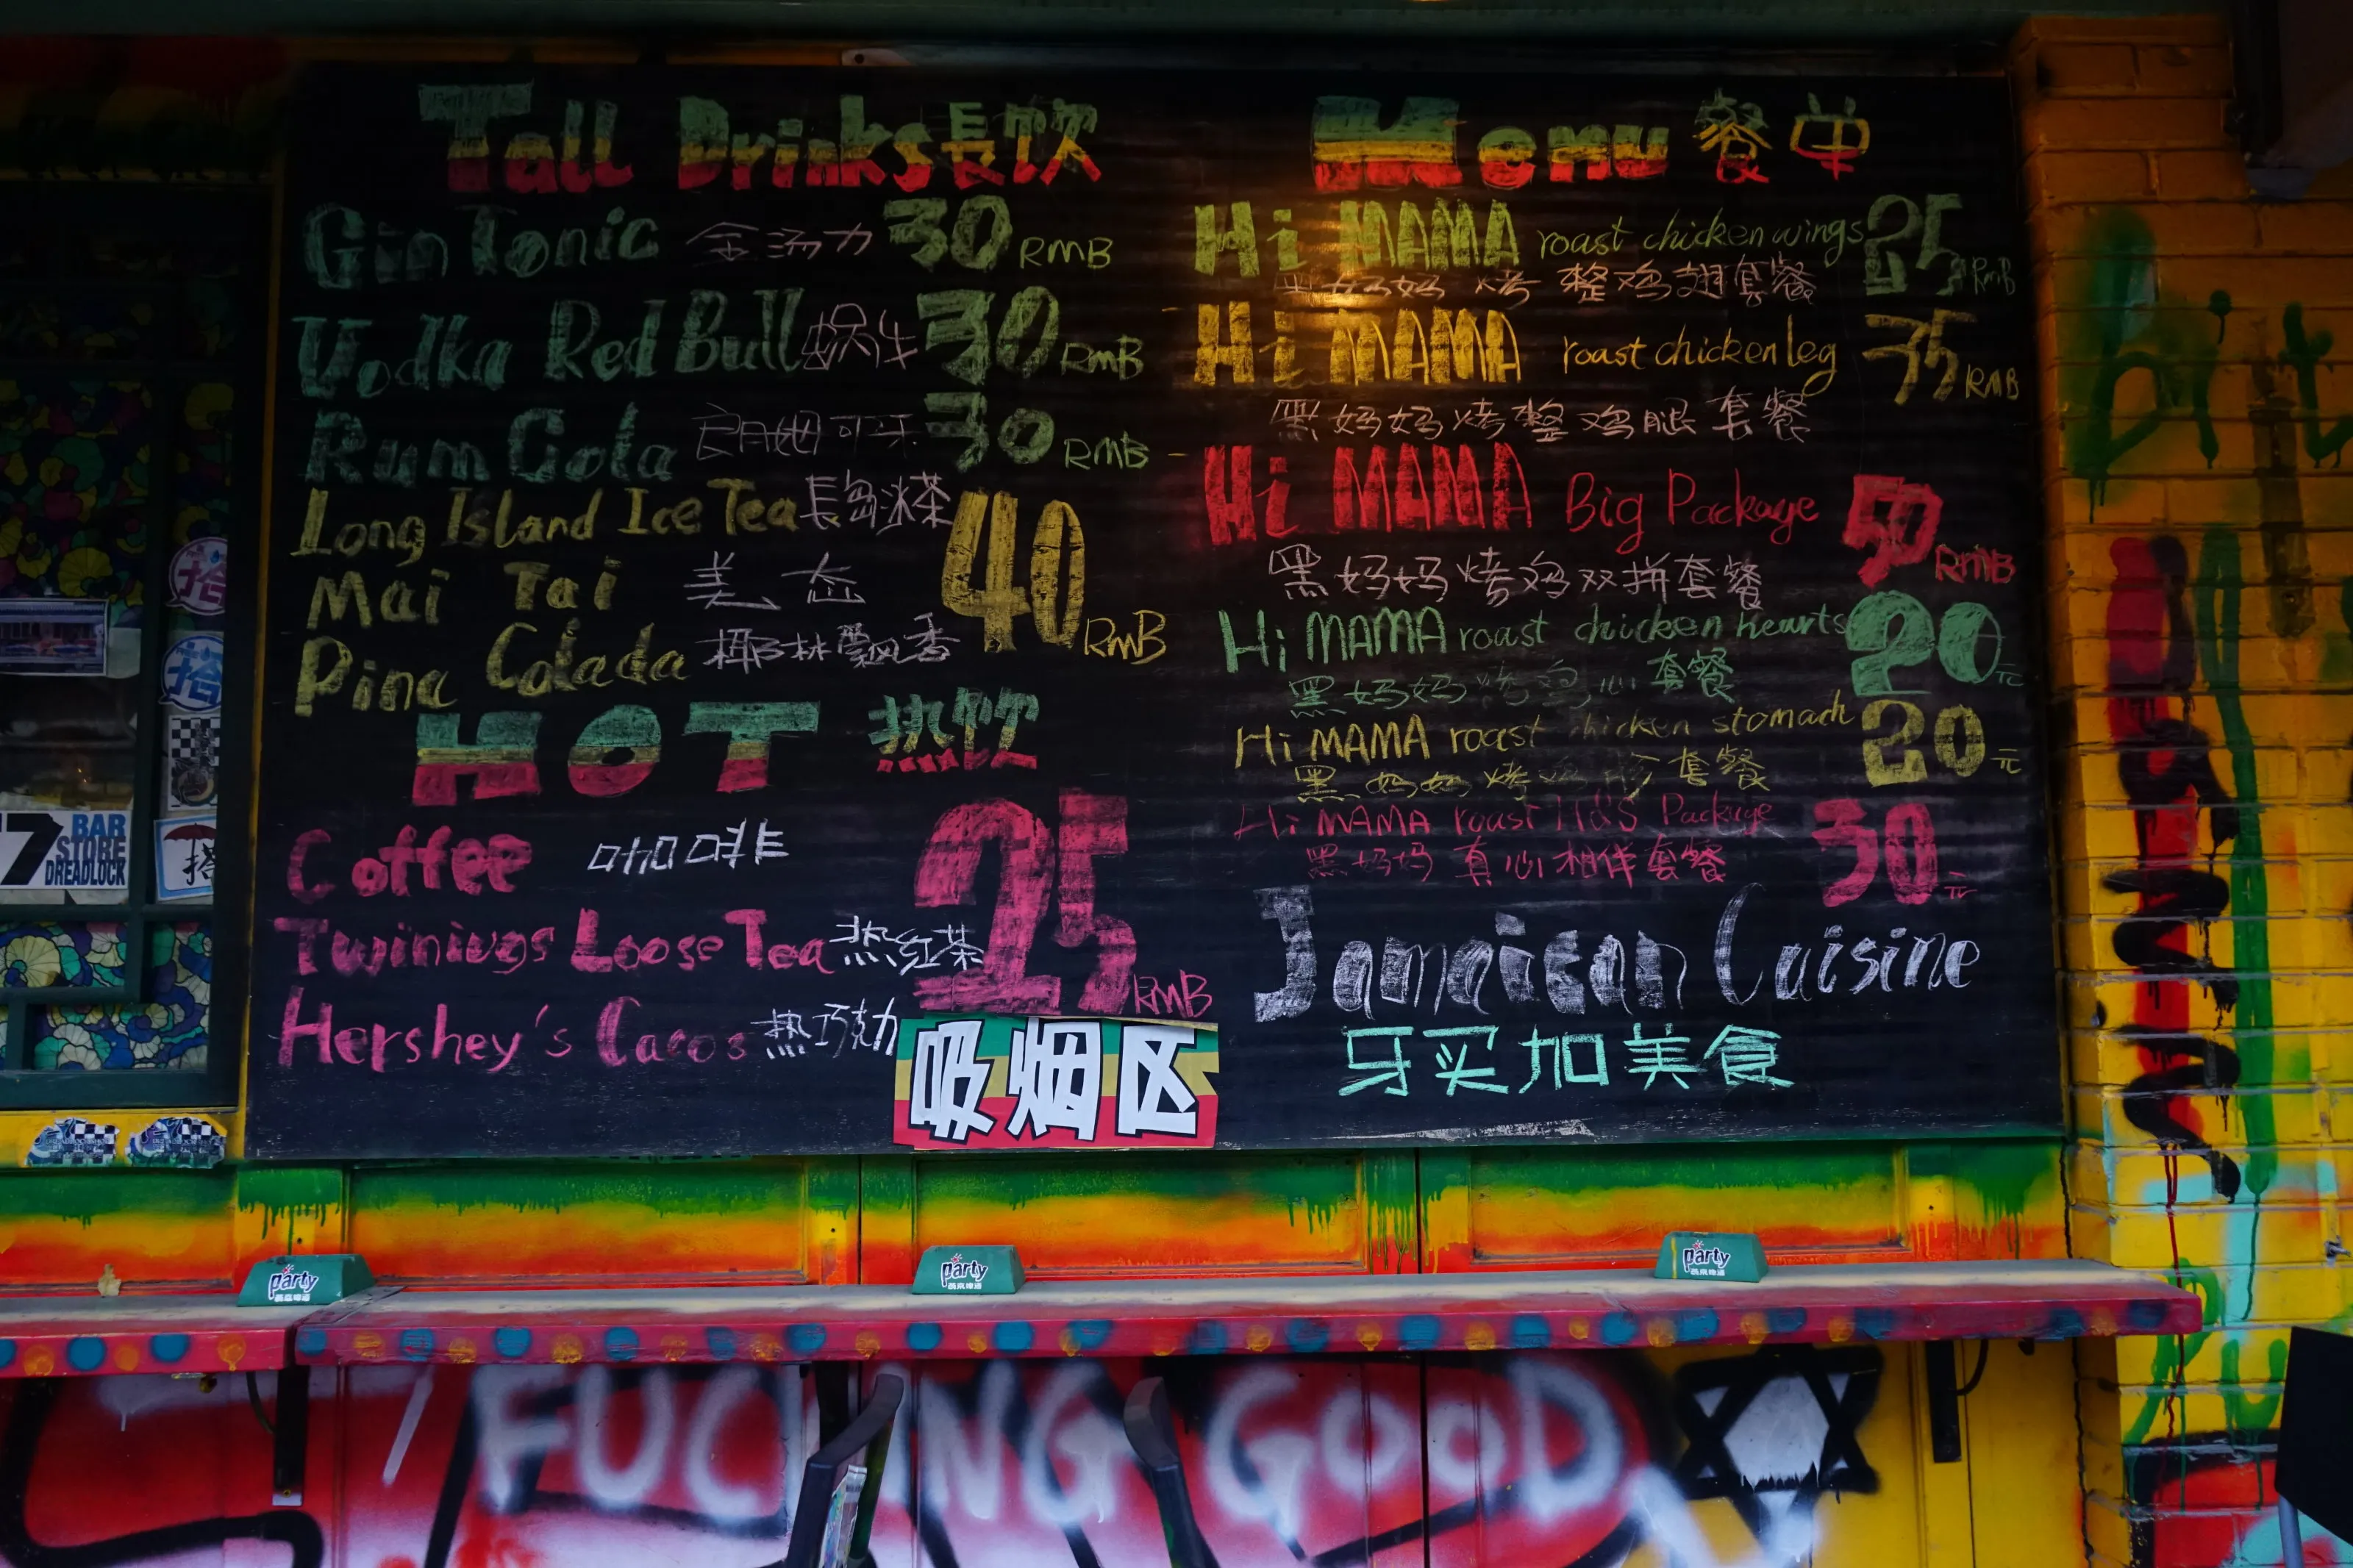 Tall Drinks 長饮
Gin Tonic 金汤力 30 RMB
Vodka Red Bull 30 RmB
Rum Cola 可乐 30 RMB
Long Island Ice Tea 長岛冰茶
Mai Tai 美态 40 RmB
Pina Colada 椰林飘香
HOT 热饮
Coffee 咖啡
Twinings Loose Tea 热红茶 25 RMB
Hershey's Cacos 热巧克力
吸烟区
Menu 餐单
Hi MAMA roast chicken wings 25 RmB
黑妈妈 烤 整鸡翅套餐
Hi MAMA roast chicken leg 35 RMB
黑妈妈烤整鸡腿套餐
Hi MAMA Big Package 50 RMB
黑妈妈烤鸡双拼套餐
Hi MAMA roast chicken hearts 20 元
黑妈妈烤鸡心套餐
Hi MAMA roast chicken stomach 20 元
黑妈妈烤鸡胗套餐
Hi MAMA roast H&S Package 30 元
黑妈妈真心相伴套餐
Jamaican Cuisine
牙买加美食
搭
搭
7 BAR
STORE
DREADLOCK
搭
party
燕京啤酒
party
燕京啤酒
party
燕京啤酒
FUC NG GOOD